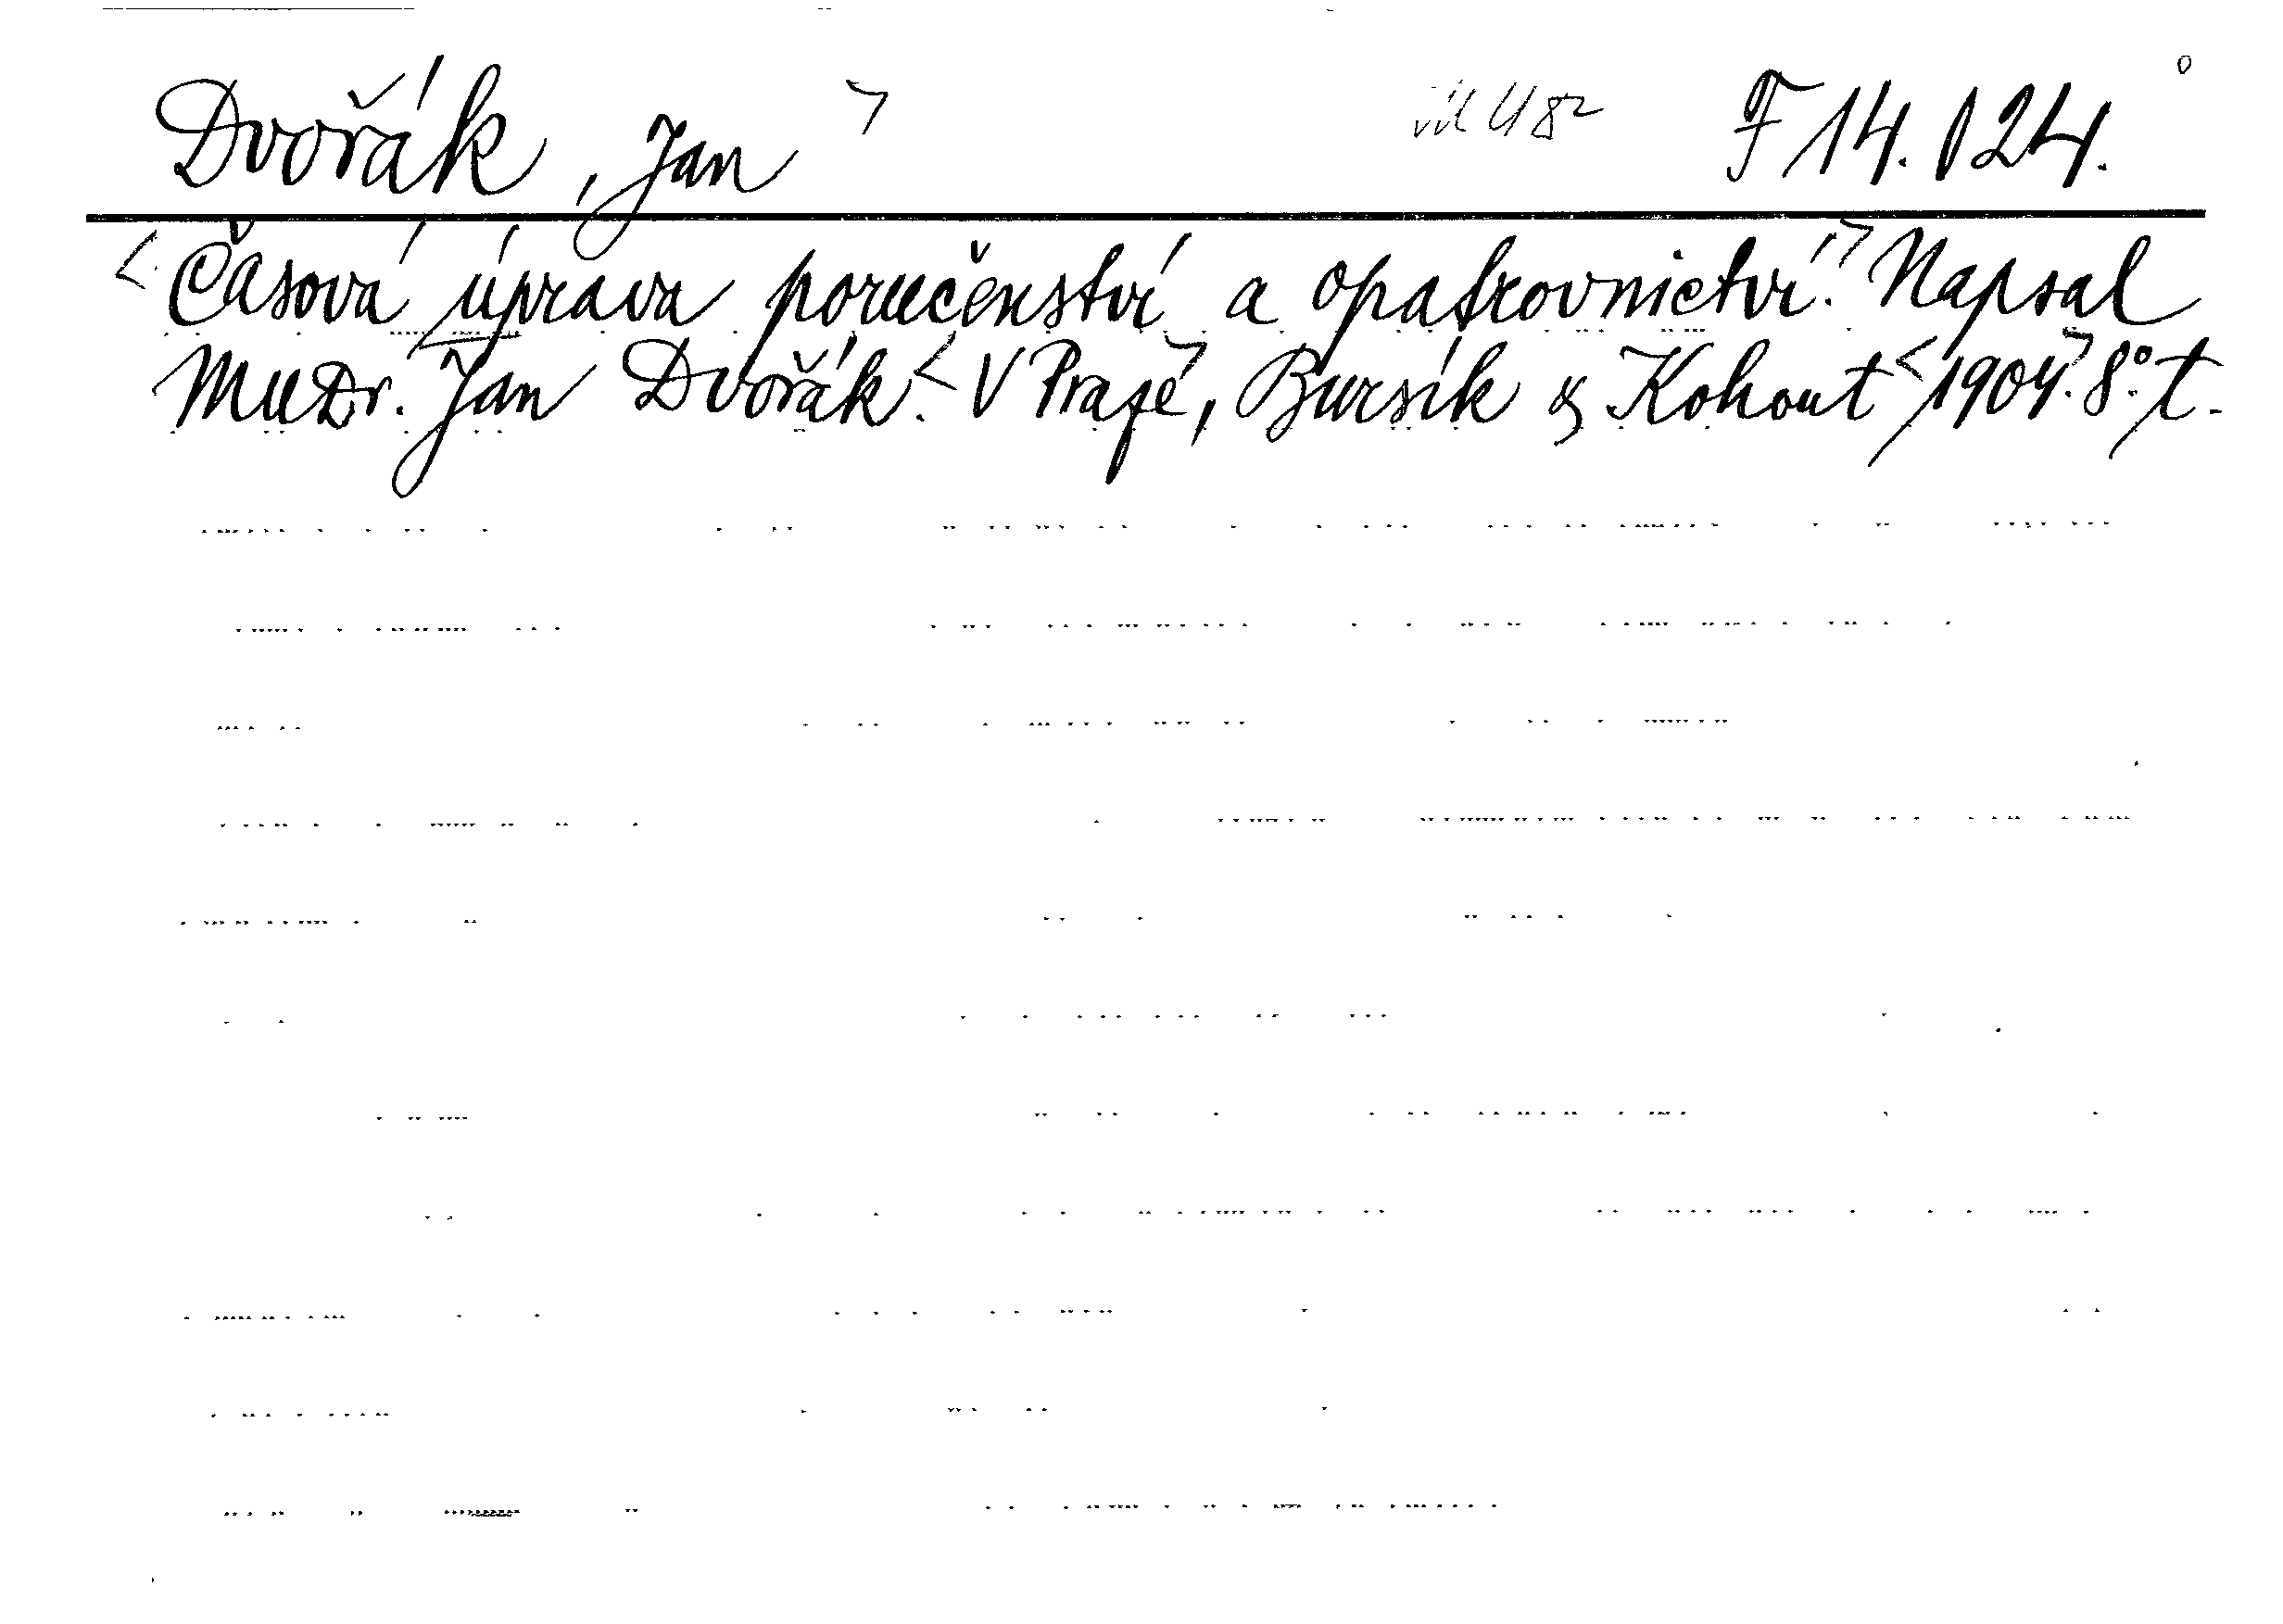 Dvořák, Jan F 14.124.
Časová úprava poručenství a opatrovnictví. Napsal
MUDr. Jan Dvořák. V Praze, Bursík & Kohout 1904. 8°. t.